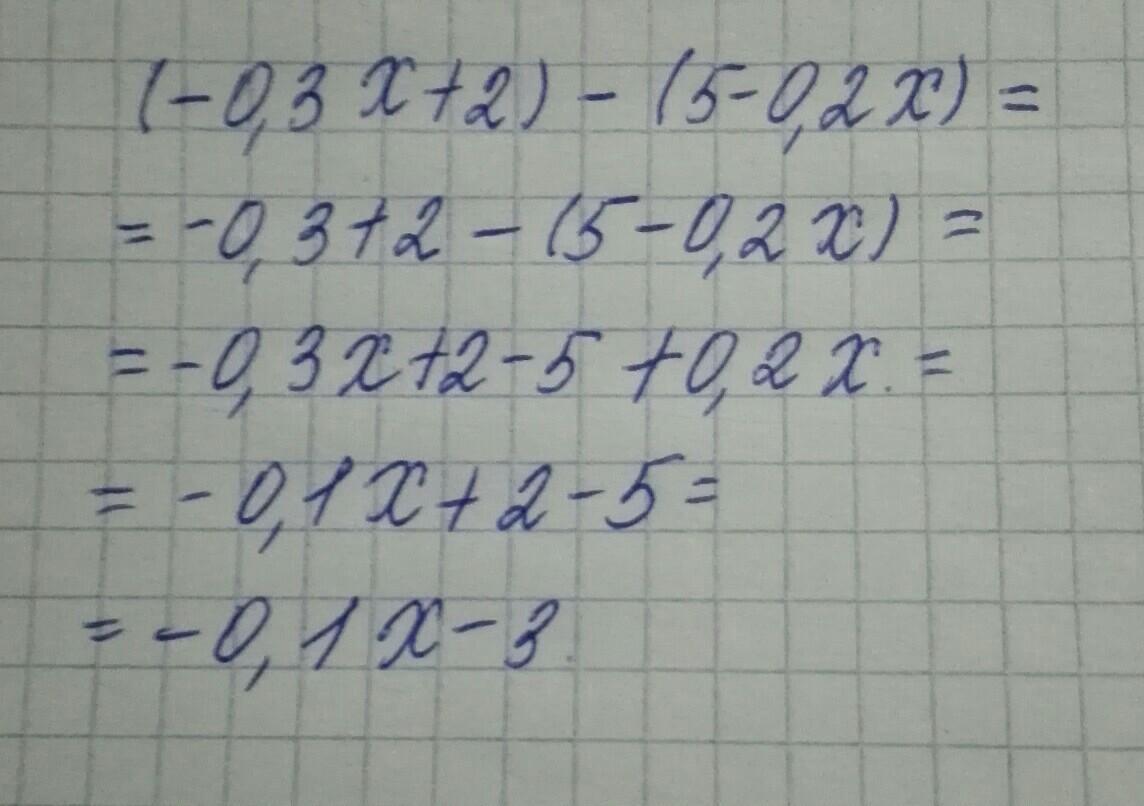 (-0,3x+2)-(5-0,2x)=
=-0,3+2-(5-0,2x)=
=-0,3x+2-5+0,2x.=
=-0,1x+2-5=
=-0,1x-3.